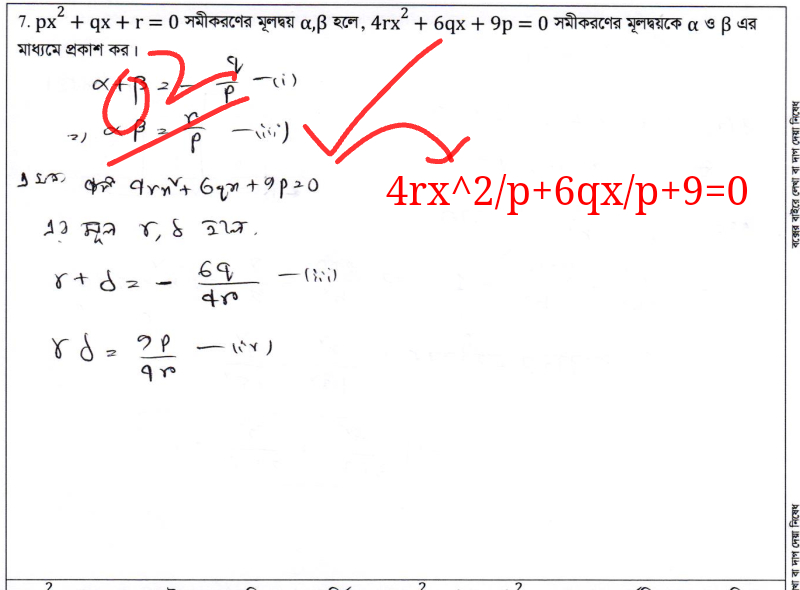 7. px² + qx + r = 0 সমীকরণের মূলদ্বয় α,β হলে, 4rx² + 6qx + 9p = 0 সমীকরণের মূলদ্বয়কে α ও β এর
মাধ্যমে প্রকাশ কর।
α+β = - q/p —(i)
02
=) αβ = r/p —(ii)
4rx² + 6qx + 9p = 0
4rx^2/p+6qx/p+9=0
এর মূল γ, δ হলে,
γ + δ = - 6q/4r —(iii)
γδ = 9p/4r —(iv)
বক্সের বাইরে লেখা বা দাগ দেয়া নিষেধ
খা বা দাগ দেয়া নিষেধ